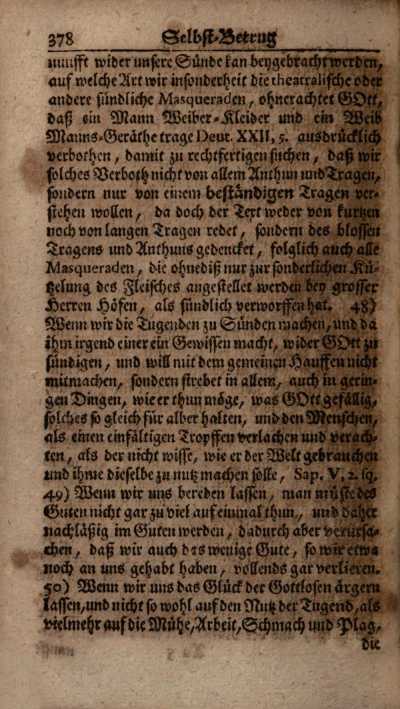 378 Selbst-Betrug
nunfft wider unsere Sünde kan beygebracht werden,
auf welche Art wir insonderheit die theatralische oder
andere sündliche Masqueraden, ohnerachtet GOtt,
daß ein Mann Weiber-Kleider und ein Weib
Manns-Geräthe trage Deut. XXII, 5. ausdrücklich
verbothen, damit zu rechtfertigen suchen, daß wir
solches Verboth nicht von allem Anthun und Tragen,
sondern nur von einem beständigen Tragen ver-
stehen wollen, da doch der Text weder von kurtzen
noch von langen Tragen redet, sondern des blossen
Tragens und Anthuns gedencket, folglich auch alle
Masqueraden, die ohnediß nur zur sonderlichen Kü-
tzelung des Fleisches angestellet werden bey grosser
Herren Höfen, als sündlich verworffen hat. 48)
Wenn wir die Tugenden zu Sünden machen, und da
ihm irgend einer ein Gewissen macht, wider GOtt zu
sündigen, und will mit dem gemeinen Hauffen nicht
mitmachen, sondern strebet in allem, auch in gerin-
gen Dingen, wie er thun möge, was GOtt gefällig,
solches so gleich für alber halten, und den Menschen,
als einen einfältigen Tropffen verlachen und verach-
ten, als der nicht wisse, wie er der Welt gebrauchen
und ihme dieselbe zu nutz machen solle, Sap. V, 2. sq.
49) Wenn wir uns bereden lassen, man müste des
Guten nicht gar zu viel auf einmal thun, und daher
nachläßig im Guten werden, dadurch aber verursa-
chen, daß wir auch das wenige Gute, so wir etwa
noch an uns gehabt haben, vollends gar verlieren.
50) Wenn wir uns das Glück der Gottlosen ärgern
lassen, und nicht so wohl auf den Nutz der Tugend, als
vielmehr auf die Mühe, Arbeit, Schmach und Plag,
die